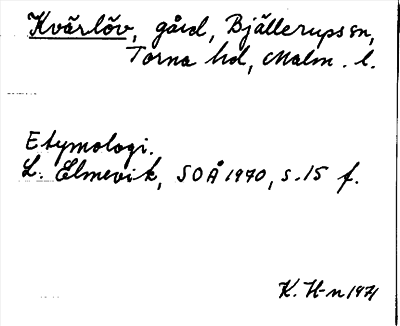 Kvärlöv, gård, Bjällerups sn,
Torna hd, Malm. l.
Etymologi.
L. Elmevik, SOÅ 1970, s. 15 f.
K. H-n 1971